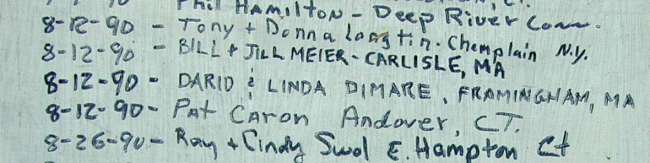 Phil Hamilton - Deep River Conn.
8-12-90 - Tony + Donna Longtin. Champlain N.Y.
8-12-90 - BILL + JILL MEIER - CARLISLE, MA
8-12-90 - DARID & LINDA DIMARE, FRAMINGHAM, MA
8-12-90 - Pat Caron Andover, CT.
8-26-90 - Ray + Cindy Swol E. Hampton Ct